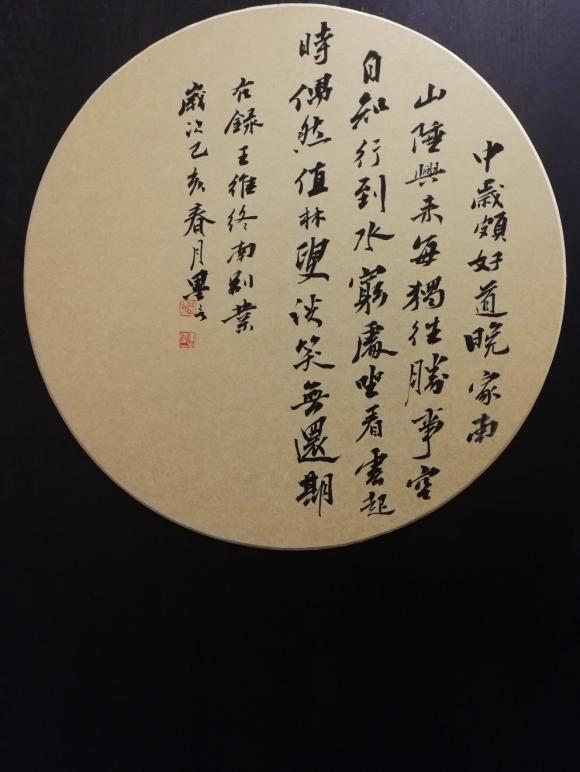 中歲頗好道晚家南
山陲興来每獨往勝事空
自知行到水窮處坐看雲起
時偶然值林叟談笑無還期
右録王維終南别業
歲次乙亥春月